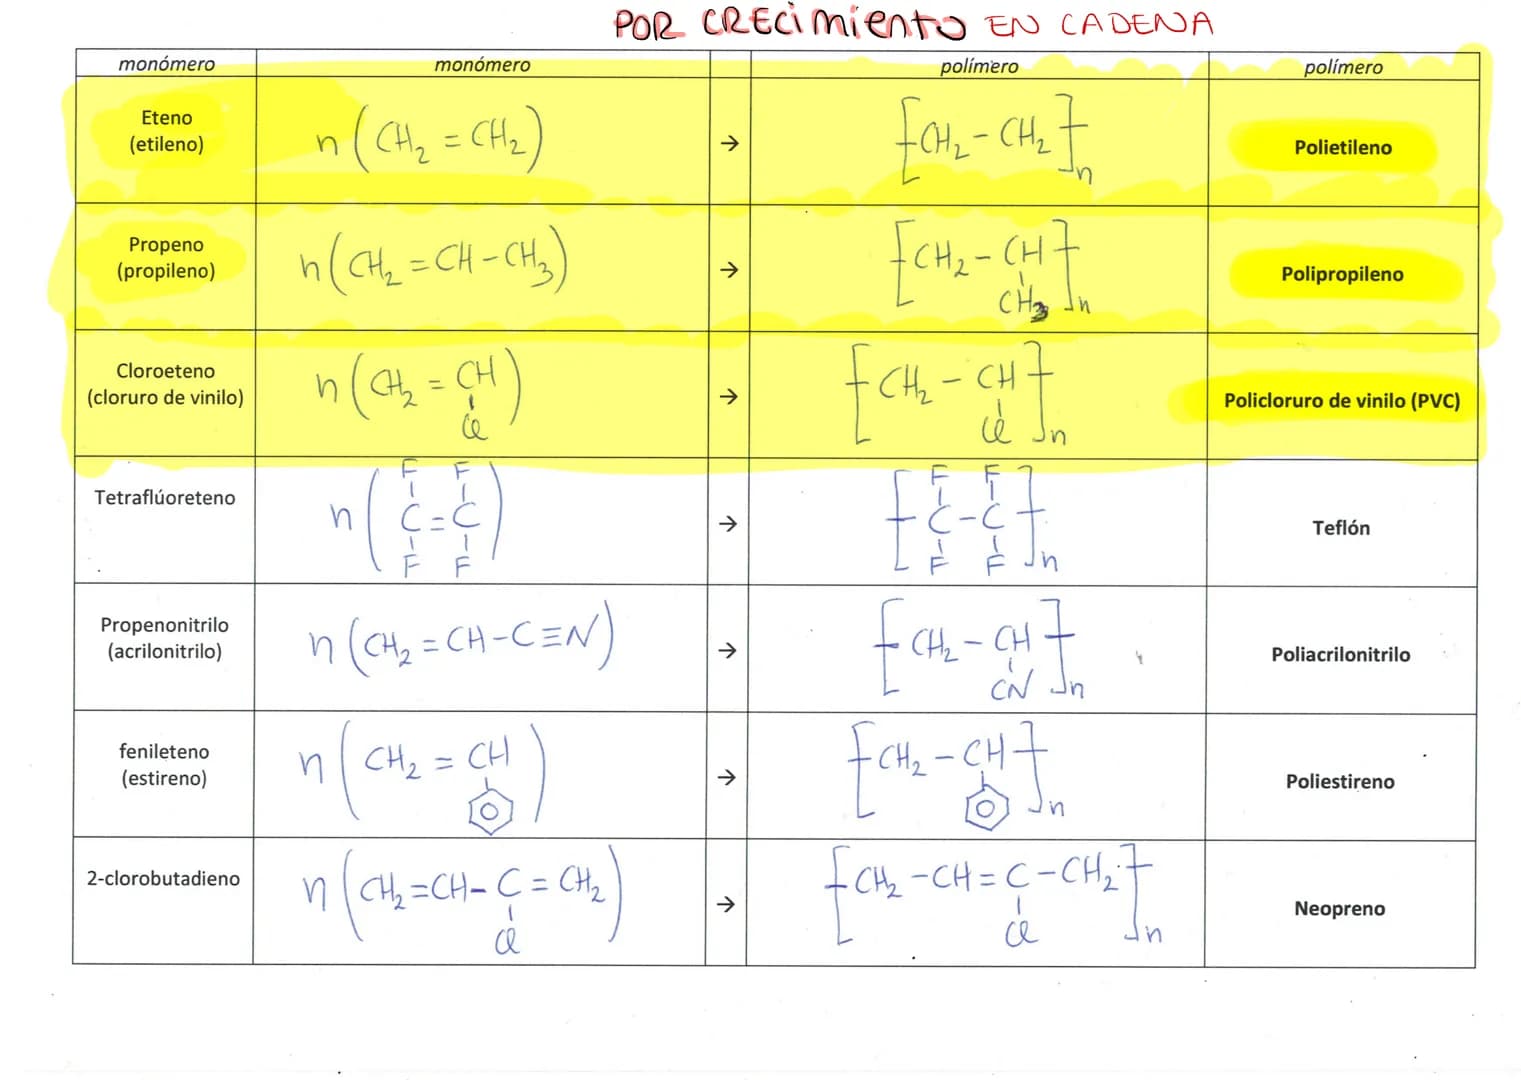 POR CRECimiento EN CADENA
monómero monómero polímero polímero
Eteno
(etileno)
n(CH₂ = CH₂)
→
[CH₂ - CH₂]n
Polietileno
Propeno
(propileno)
n(CH₂ = CH - CH₃)
→
[CH₂ - CH]n
CH₃
Polipropileno
Cloroeteno
(cloruro de vinilo)
n(CH₂ = CH)
Cl
→
[CH₂ - CH]n
Cl
Policloruro de vinilo (PVC)
Tetraflúoreteno
F F
n(C = C)
F F
→
F F
[C - C]n
F F
Teflón
Propenonitrilo
(acrilonitrilo)
n(CH₂ = CH - C≡N)
→
[CH₂ - CH]n
CN
Poliacrilonitrilo
fenileteno
(estireno)
n(CH₂ = CH)
→
[CH₂ - CH]n
Poliestireno
2-clorobutadieno
n(CH₂=CH-C=CH₂)
Cl
→
[CH₂-CH=C-CH₂]n
Cl
Neopreno